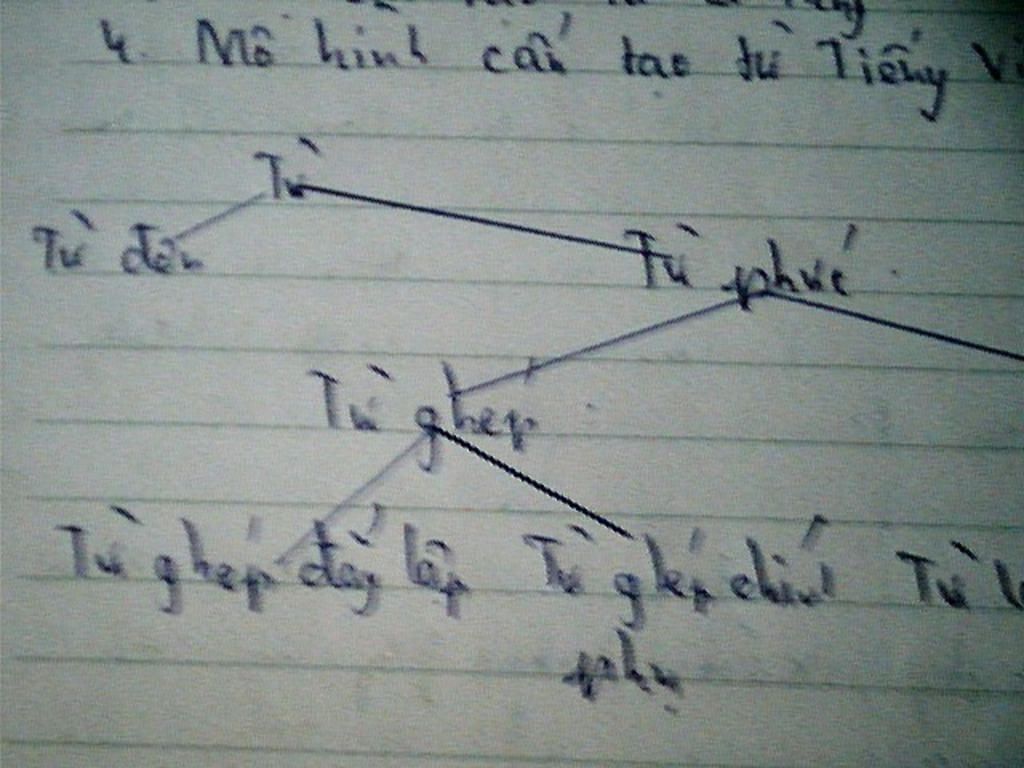 4. Mô hình cấu tạo từ Tiếng
Từ
Từ đơn
Từ phức
Từ ghép
Từ ghép đẳng lập Từ ghép chính Từ
phụ